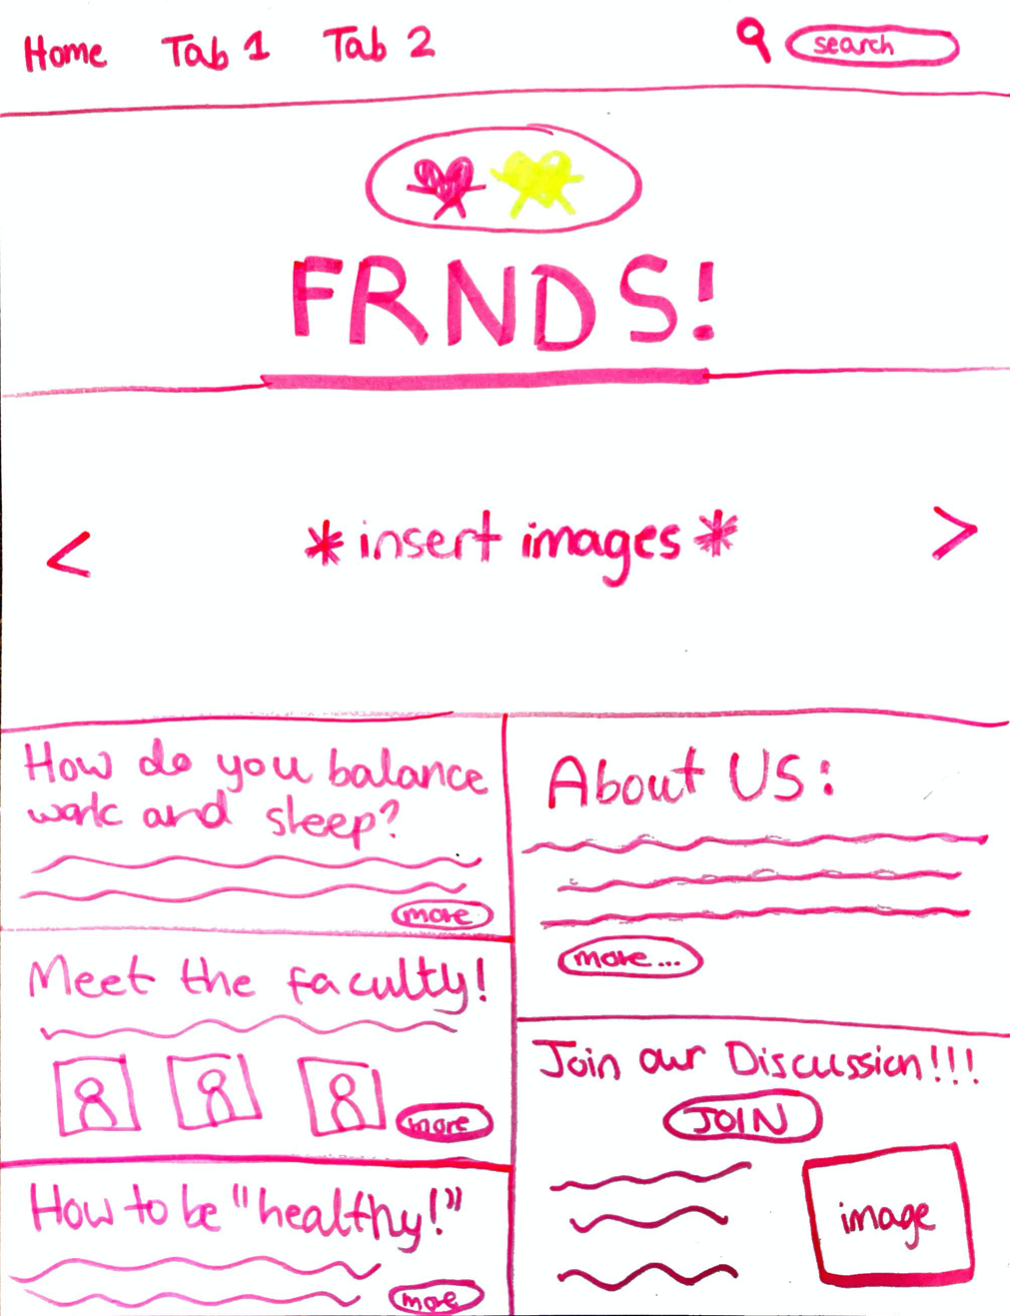 Home Tab 1 Tab 2 search
FRNDS!
< *insert images* >
How do you balance
work and sleep?
more
Meet the faculty!
more
How to be "healthy!"
more
About US:
more...
Join our Discussion!!!
JOIN
image